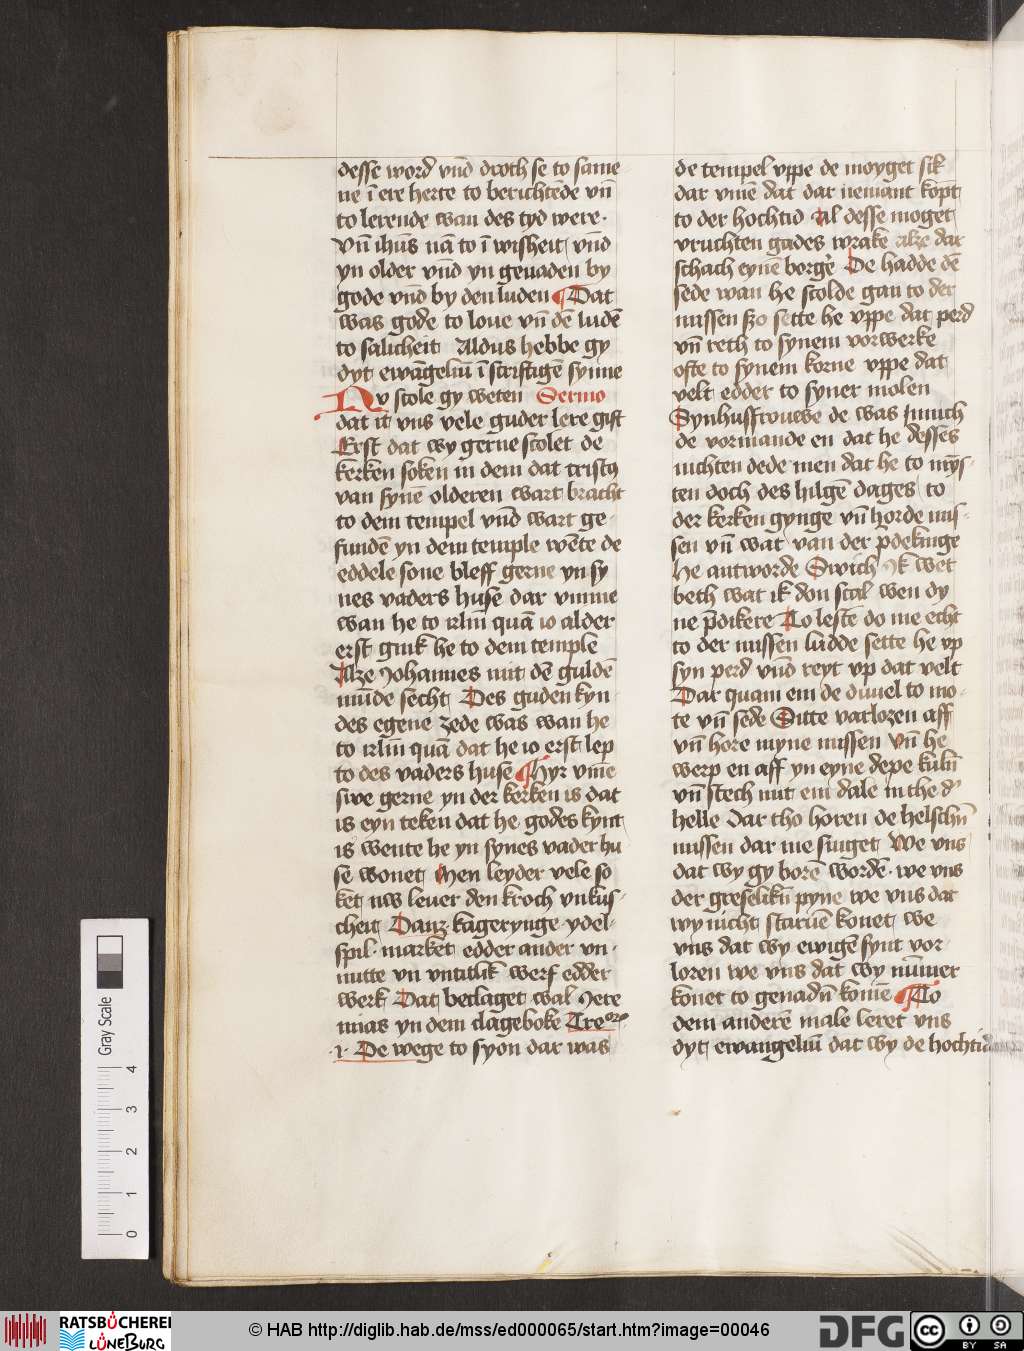 desse word vn̄d droch se to same
ne ī ere herte to berichtēde vn̄
to lerende wan des tyd were·
Vn̄ ih̄us nā to ī wisheit vn̄d
yn older vn̄d yn genaden by
gode vn̄d by den luden Dat
was gode to loue vn̄ dē ludē
to salicheit Aldus hebbe gy
dyt ewāgeliū ī scrifftigē synne
Nv scole gy weten Sermo
dat it vns vele guder lere gift
Erst dat wy gerne scolet de
kerken soken in dem dat cristꝯ
van synē olderen wart bracht
to dem tempel vn̄d wart ge
fundē yn dem temple wēte de
eddele sone bleff gerne yn sy
nes vaders huse dar vmme
wan he to irl̄m quā io alder
erst gink he to dem temple
Alze Johannes mit dē guldē
mūde secht Des guden kyn
des egene zede was wan he
to irl̄m quā dat he io erst lep
to des vaders huse Hyr vm̄e
swe gerne yn der kerken is dat
is eyn teken dat he godes kynt
is wente he yn synes vader hu
se wonet Men leyder vele so
ket nw leuer den kroch vnkus
cheit Danz kagerynge ydel
spil· market edder ander vn·
nutte vn vntitlik werk edder
werk Dat beclaget wal Jere
mias yn dem clageboke Tre
·i· De wege to syon dar was
de tempel vppe de moyget sik
dar vm̄e dat dar nemant kop̄t
to der hochtid Al desse moget
vruchten gades wrake alze dar
schach eynē borge De hadde dē
sede wan he scolde gan to der
missen szo sette he vppe dat perd
vn̄ reth to synem vorwerke
ofte to synem korne vppe dat
velt edder to syner molen
Synhussfrouwe de was Innich
de vormande en dat he desses
nichten dede men dat he to myſ·
ten doch des hilgē dages to
der kerken gynge vn̄ horde mis·
sen vn̄ wat van der p̄dekinge
He antworde Swich Ik wet
beth wat ik don scal wen dy
ne p̄dikere To lestē do me echt
to der missen ludde sette he vp
syn perd vn̄d reyt vp dat velt
Dar quam em de duuel to mo·
te vn̄ sede Sitte varlozen aff
vn̄ hore myne missen Vn̄ he
werp en aff yn eyne depe kuln̄
vn̄ stech mit em dale in the d'
helle Dar tho horen de helschn̄
missen dar me singet We vns
dat wy gy borē wordē· we vns
der greselikn̄ pyne we vns dat
wy nicht staruē konet we
vns dat wy ewigē synt vor·
loren we vns dat wy nūmer
konet to genadn̄ komē To
dem anderē male leret vns
dyt ewangeliū dat wy de hochtid
Gray Scale
4
3
2
1
0
RATSBÜCHEREI
LÜNEBURG
© HAB http://diglib.hab.de/mss/ed000065/start.htm?image=00046
DFG
cc
BY SA